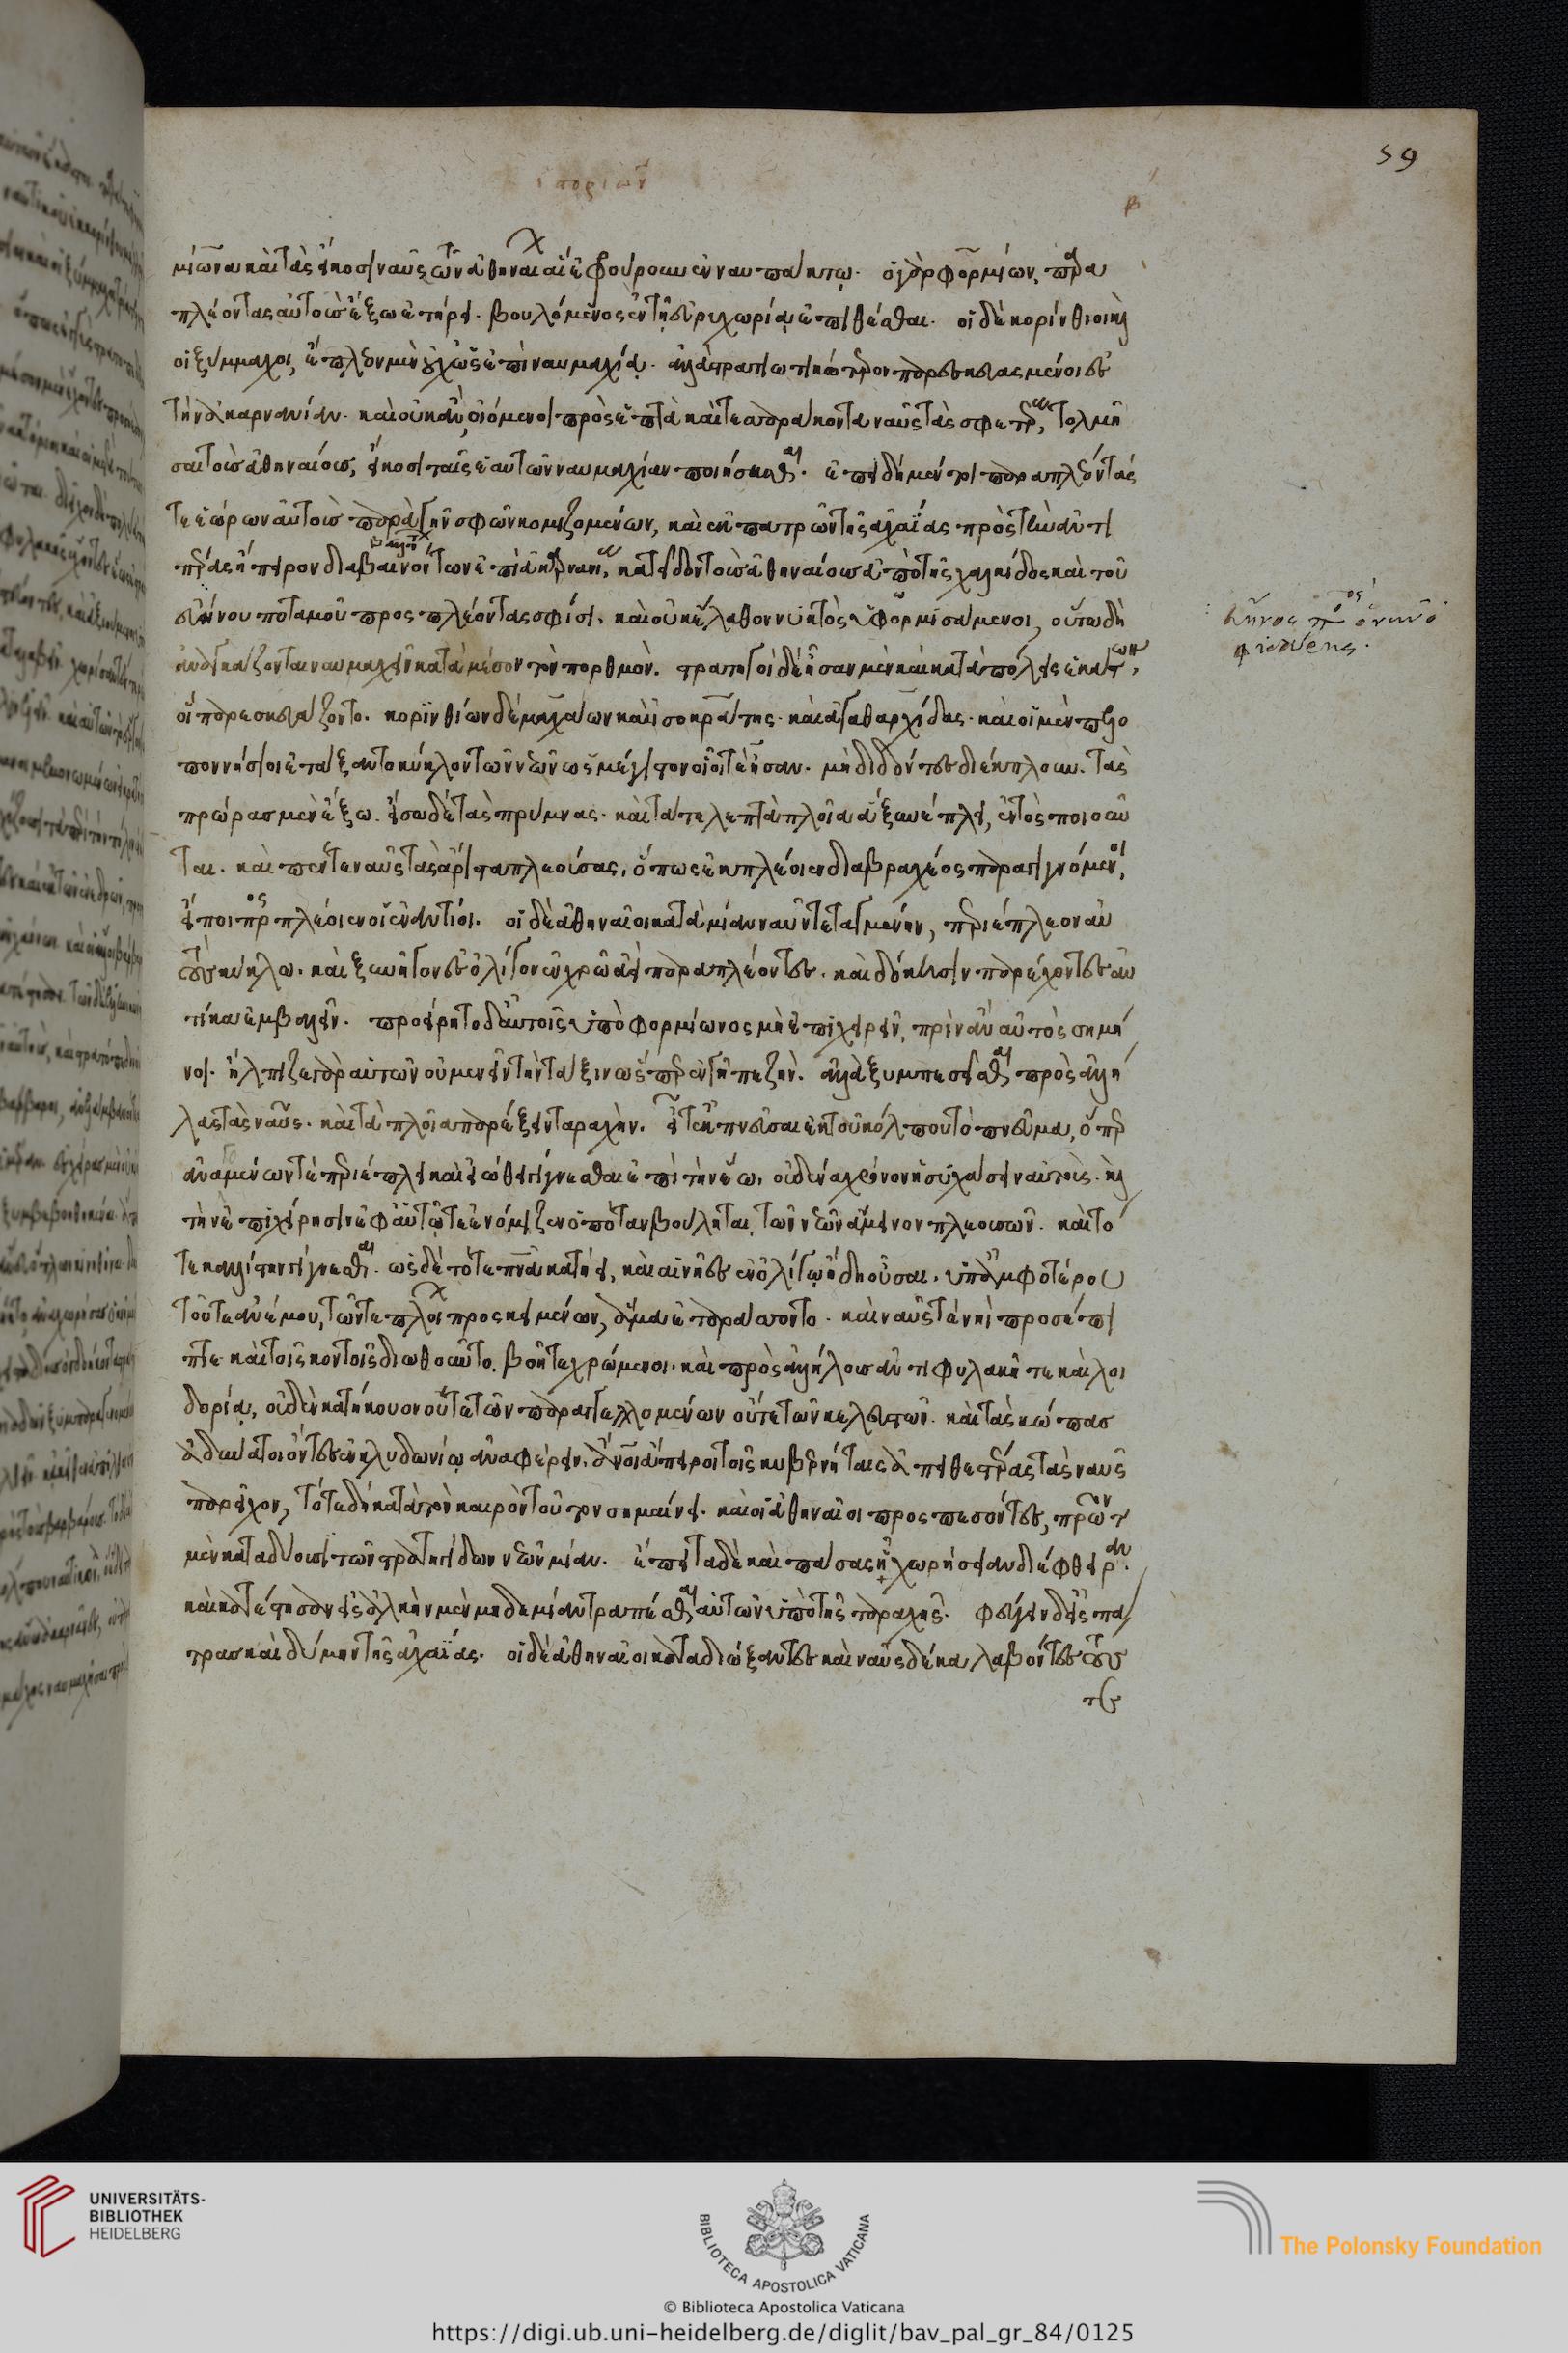 ἱστοριῶν
β
59
μίωνα καὶ τὰς εἴκοσι ναῦς τῶν ἀθηναίων αἳ ἐφρούρουν ἐν ναυπάκτῳ. ὁ γὰρ φορμίων παρα
πλέοντας αὐτοὺς ἔξω ἐτήρει. βουλόμενος ἐν τῇ εὐρυχωρίᾳ ἐπιθέσθαι. οἱ δὲ κορίνθιοι καὶ
οἱ ξύμμαχοι, ἔπλεον μὲν οὐχ ὡς ἐπὶ ναυμαχίᾳ. ἀλλὰ στρατιωτικώτερον παρεσκευασμένοι ἐς
τὴν ἀκαρνανίαν. καὶ οὐκ ἂν οἰόμενοι πρὸς ἑπτὰ καὶ τεσσαράκοντα ναῦς τὰς σφετέρας, τολμῆ
σαι τοὺς ἀθηναίους, εἴκοσι ταῖς ἑαυτῶν ναυμαχίαν ποιήσασθαι. ἐπειδὴ μέντοι παραπλέοντάς
τε ἑώρων αὐτοὺς παρὰ γῆν σφῶν κομιζομένων, καὶ ἐκ πατρῶν τῆς ἀχαΐας πρὸς τὴν ἀντι
πέρας ἤπειρον διαβαινόντων ἐπὶ ἀκαρνανίας, κατεῖδον τοὺς ἀθηναίους ἀπὸ τῆς χαλκίδος καὶ τοῦ
εὐήνου ποταμοῦ προσπλέοντας σφίσι. καὶ οὐκ ἔλαθον νυκτὸς ὑφορμισάμενοι, οὕτω δὴ
ἀναγκάζονται ναυμαχεῖν κατὰ μέσον τὸν πορθμόν. στρατηγοὶ δὲ ἦσαν μὲν καὶ κατὰ πόλεις ἑκάστων,
οἳ παρεσκευάζοντο. κορινθίων δὲ μαχάων καὶ ἰσοκράτης. καὶ ἀγαθαρχίδας. καὶ οἱ μὲν πελο
ποννήσιοι ἐτάξαντο κύκλον τῶν νεῶν ὡς μέγιστον οἷοί τε ἦσαν. μὴ διδόντες διέκπλουν. τὰς
πρώρας μὲν ἔξω. εἴσω δὲ τὰς πρύμνας. καὶ τά τε λεπτὰ πλοῖα ἃ ξυνέπλει, ἐντὸς ποιοῦν
ται. καὶ πέντε ναῦς τὰς ἄριστα πλεούσας, ὅπως ἐκπλέοιεν διὰ βραχέος παραγιγνόμενοι,
εἴ ποι προσπλέοιεν οἱ ἐναντίοι. οἱ δὲ ἀθηναῖοι κατὰ μίαν ναῦν τεταγμένην, περιέπλεον αὐ
τοὺς κύκλῳ. καὶ ξυνῆγον ἐς ὀλίγον ἐν χρῷ ἀεὶ παραπλέοντες. καὶ δόκησιν παρέχοντες αὐ
τίκα ἐμβαλεῖν. προείρητο δ' αὐτοῖς ὑπὸ φορμίωνος μὴ ἐπιχειρεῖν, πρὶν ἂν αὐτὸς σημή
νῃ. ἤλπιζε γὰρ αὐτῶν οὐ μενεῖν τὴν τάξιν ὥσπερ ἐν γῇ πεζήν. ἀλλὰ ξυμπεσεῖσθαι πρὸς ἀλλή
λας τὰς ναῦς. καὶ τὰ πλοῖα παρέξειν ταραχήν. εἴ τ' ἐκπνεῦσαι ἐκ τοῦ κόλπου τὸ πνεῦμα, ὅπερ
ἀναμένων τε περιέπλει καὶ εἰώθει γίγνεσθαι ἐπὶ τὴν ἕω, οὐδένα χρόνον ἡσυχάσειν αὐτούς. καὶ
τὴν ἐπιχείρησιν ἐφ' αὑτῷ τε ἐνόμιζεν ὁπόταν βούληται, τῶν νεῶν ἄμεινον πλεουσῶν. καὶ τό
τε καλλίστην γίγνεσθαι. ὡς δὲ τό τε πνεῦμα κατῄει, καὶ αἱ νῆες ἐν ὀλίγῳ ἤδη οὖσαι, ὑπ' ἀμφοτέρου
τοῦ τε ἀνέμου, τῶν τε πλοίων προσκειμένων, ἅμα ἐταράσσοντο. καὶ ναῦς τε νηὶ προσέπι
πτε καὶ τοῖς κοντοῖς διωθοῦντο. βοῇ τε χρώμενοι. καὶ πρὸς ἀλλήλους ἀντιφυλακῇ τε καὶ λοι
δορίᾳ, οὐδὲν κατήκουον οὔτε τῶν παραγγελλομένων οὔτε τῶν κελευστῶν. καὶ τὰς κώπας
ἀδύνατοι ὄντες ἐν κλυδωνίῳ ἀναφέρειν, ἄνθρωποι ἄπειροι τοῖς κυβερνήταις ἀπειθεστέρας τὰς ναῦς
παρεῖχον, τότε δὴ κατὰ τὸν καιρὸν τοῦτον σημαίνει. καὶ οἱ ἀθηναῖοι προσπεσόντες, πρῶτον
μὲν καταδύουσι τῶν στρατηγίδων νεῶν μίαν. ἔπειτα δὲ καὶ πάσας ᾗ χωρήσειαν διέφθειραν.
καὶ κατέστησαν ἐς ἀλκὴν μὲν μηδεμίαν τραπέσθαι αὐτῶν ὑπὸ τῆς ταραχῆς. φεύγειν δ' ἐς πά
τρας καὶ δύμην τῆς ἀχαΐας. οἱ δὲ ἀθηναῖοι καταδιώξαντες καὶ ναῦς δώδεκα λαβόντες τούς
τε
UNIVERSITÄTS-
BIBLIOTHEK
HEIDELBERG
BIBLIOTECA APOSTOLICA VATICANA
The Polonsky Foundation
© Biblioteca Apostolica Vaticana
https://digi.ub.uni-heidelberg.de/diglit/bav_pal_gr_84/0125